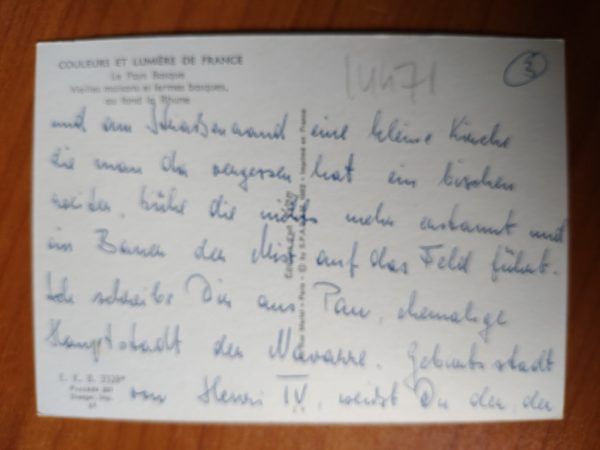 COULEURS ET LUMIÈRE DE FRANCE
Le Pays Basque
Vieilles maisons et fermes basques,
au fond la Rhune
14471
3
und am Straßenrand eine kleine Kirche
die man da vergessen hat ein bischen
weiter, Kühe die nichts mehr erstaunt und
ein Bauer der Mist auf das Feld führt.
Ich schreibe Dir aus Pau, ehemalige
Hauptstadt der Navarre. Geburtsstadt
von Henri IV, weißt Du der, der
Imprimé en France